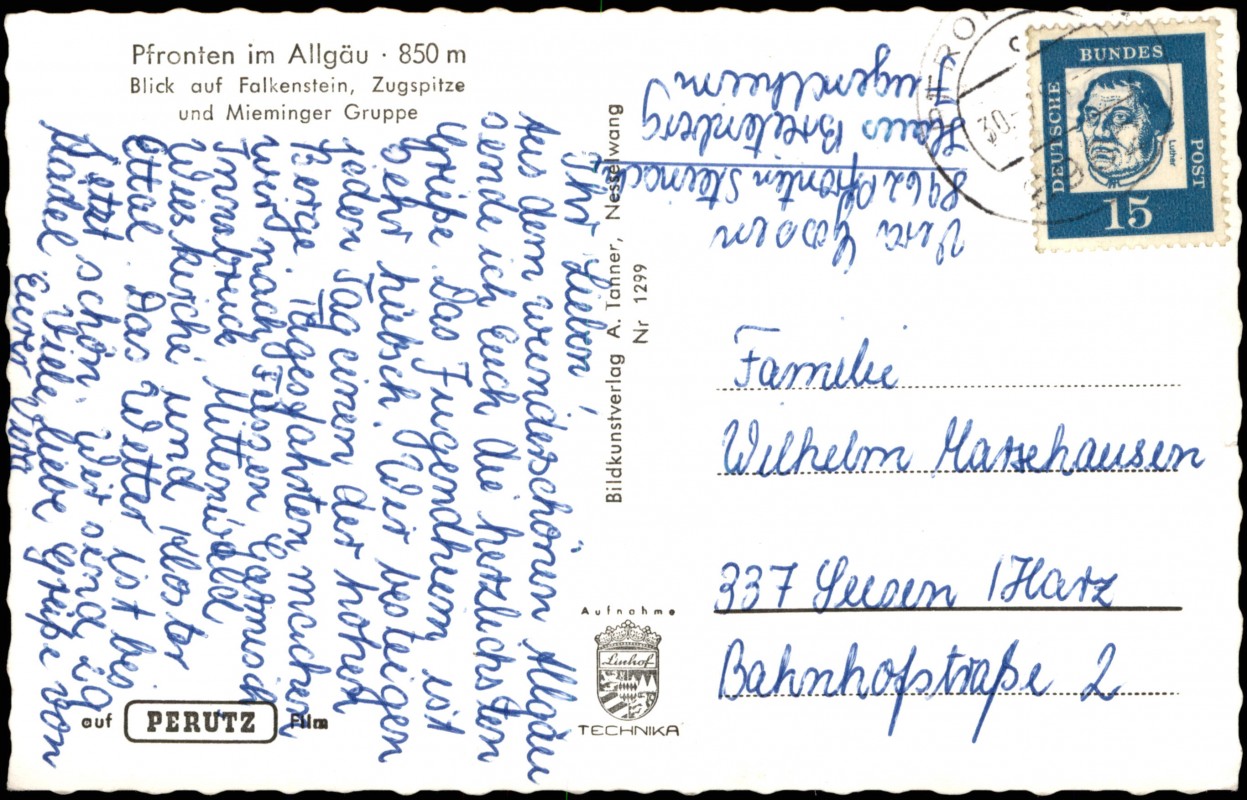 Pfronten im Allgäu · 850 m
Blick auf Falkenstein, Zugspitze
und Mieminger Gruppe
Ihr Lieben!
Aus dem wunderschönen Allgäu
sende ich Euch die herzlichsten
Grüße. Das Jugendheim ist
sehr hübsch. Wir besteigen
jeden Tag einen der hohen
Berge. Tagesfahrten machen
wir nach Füssen Garmisch
Innsbruck Mittenwald
Wieskirche und Kloster
Ettal. Das Wetter ist bis
jetzt schön. Wir sind 29
Mädel. Viele liebe Grüße von
Eurer Vera
auf PERUTZ Film
Bildkunstverlag A. Tanner, Nesselwang
Nr 1299
Aufnahme
Linhof
TECHNIKA
Vera Goosen
8962 Pfronten Steinach
Haus Breitenberg
Jugendheim
PFRON
30.
DEUTSCHE
BUNDES
POST
Luther
15
Familie
Wilhelm Marsehausen
337 Seesen /Harz
Bahnhofstraße 2